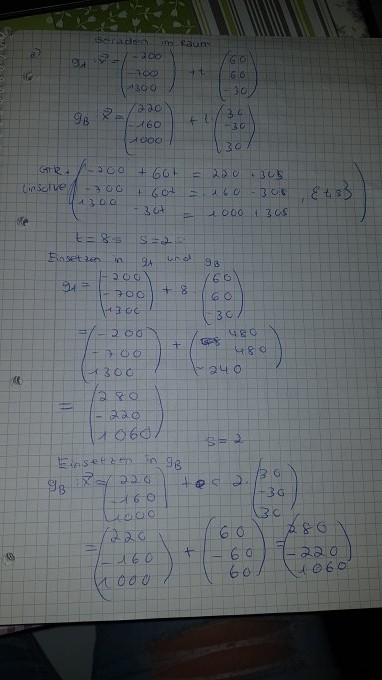 Geraden im Raum
a)
gA: x⃗ = (-200 -700 1300) + t (60 60 -30)
gB x⃗ = (220 -160 1000) + (30 -30 30)
-200 + 60t = 220 + 30s
linsolve -700 + 60t = -160 - 30s, {t,s}
1300 - 30t = 1000 + 30s
t = 8 s = 2
Einsetzen in gA und gB
gA = (-200 -700 1300) + 8 · (60 60 -30)
= (-200 -700 1300) + (480 480 -240)
= (280 -220 1060)
s = 2
Einsetzen in gB
gB: x⃗ = (220 -160 1000) + 2 · (30 -30 30)
= (220 -160 1000) + (60 -60 60) = (280 -220 1060)